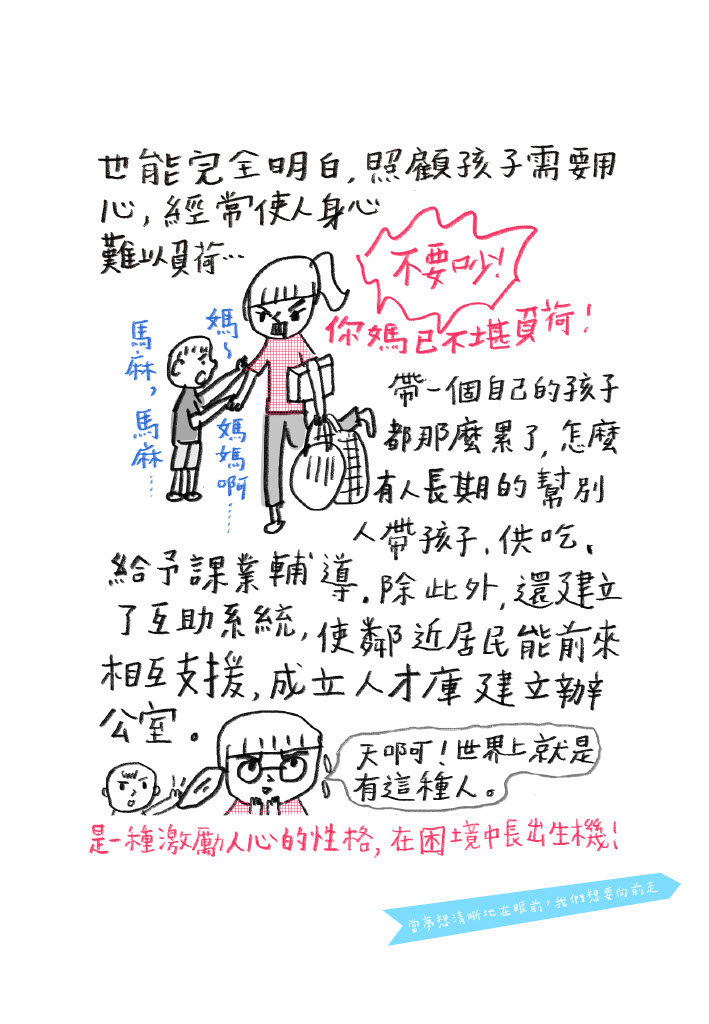 也能完全明白,照顧孩子需要用
心,經常使人身心
難以負荷…
不要吵!
你媽已不堪負荷!
媽~
馬麻,馬麻……
媽媽啊……
帶一個自己的孩子
都那麼累了,怎麼
有人長期的幫別
人帶孩子、供吃、
給予課業輔導。除此外,還建立
了互助系統,使鄰近居民能前來
相互支援,成立人才庫建立辦
公室。
天啊!世界上就是
有這種人。
是一種激勵人心的性格,在困境中長出生機!
當夢想清晰地在眼前,我們想要向前走